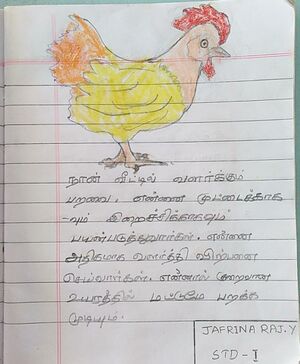 நான் வீட்டில் வளர்க்கும்
பறவை. என்னை முட்டைக்காக
-வும் இறைச்சிக்காகவும்
பயன்படுத்துவார்கள். என்னை
அதிகமாக வளர்த்தி விற்பனை
செய்வார்கள். என்னால் குறைவான
உயரத்தில் மட்டுமே பறக்க
முடியும்.
JAFRINA RAJ.Y
STD - I